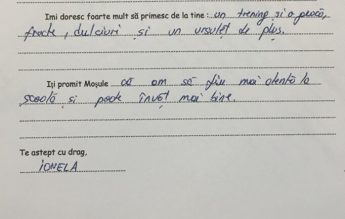 Imi doresc foarte mult să primesc de la tine : un trening și o geacă,
fructe, dulciuri și un ursuleț de pluș.
Iți promit Moșule că om să fiu mai atentă la
școală și poate învăț mai bine.
Te astept cu drag,
IONELA